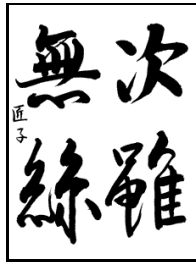 次雖
無絲
匠子